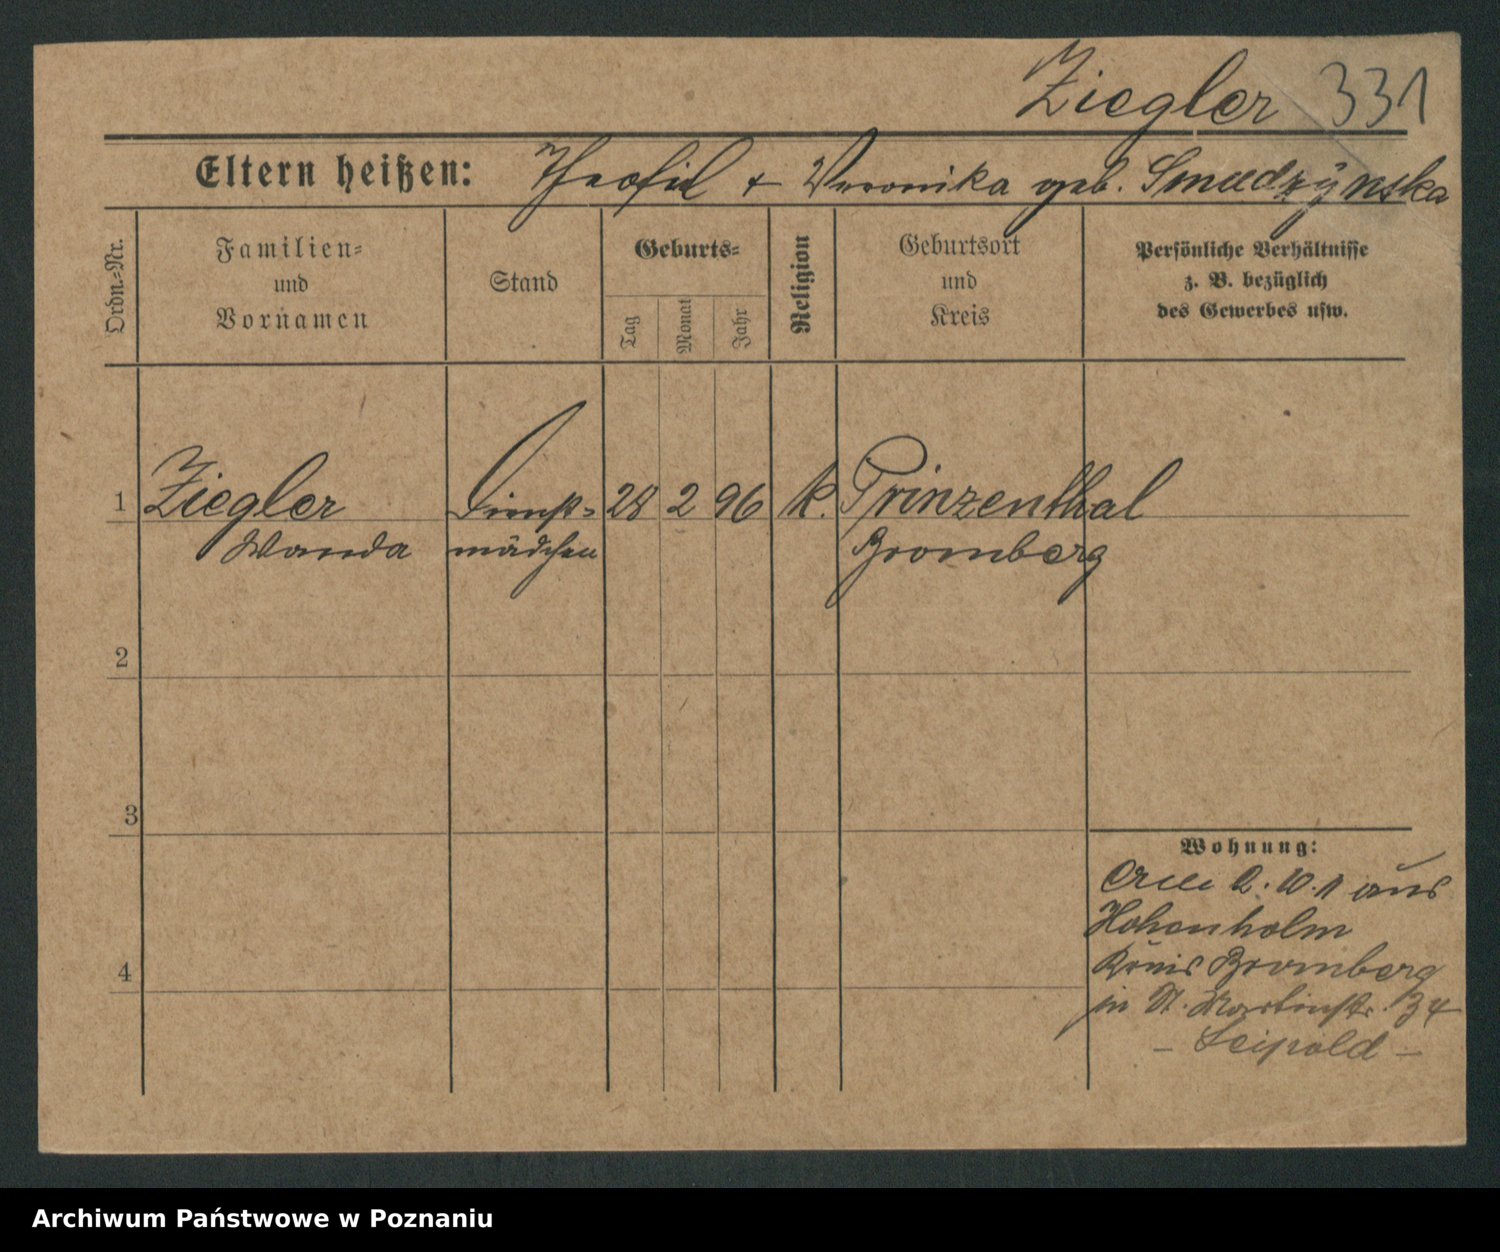 Ziegler 331
Eltern heißen: Theofil + Veronika geb. Smudzÿnska
Ordn.-Nr.
Familien-
und
Vornamen
Stand
Geburts-
Tag
Monat
Jahr
Religion
Geburtsort
und
Kreis
Persönliche Verhältnisse
z. B. bezüglich
des Gewerbes usw.
1 Ziegler Dienst- 28 2 96 k. Prinzenthal
Wanda mädchen Bromberg
2
3
Wohnung:
10.1 aus
Hohenholm
Kreis Bromberg
4
in St. Martinstr. 34
- Leipold -
Archiwum Państwowe w Poznaniu